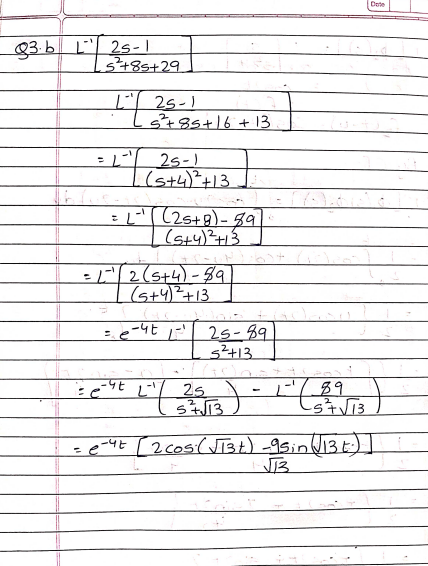 Date
Q3.b L⁻¹[(2s-1)/(s²+8s+29)]
L⁻¹[(2s-1)/(s²+8s+16+13)]
= L⁻¹[(2s-1)/((s+4)²+13)]
= L⁻¹[((2s+8)-9)/((s+4)²+13)]
= L⁻¹[(2(s+4)-9)/((s+4)²+13)]
= e⁻⁴ᵗ L⁻¹[(2s-9)/(s²+13)]
= e⁻⁴ᵗ L⁻¹(2s/(s²+√13)) - L⁻¹(9/(s²+√13))
= e⁻⁴ᵗ [2cos(√13t) - 9/√13 sin(√13t)]